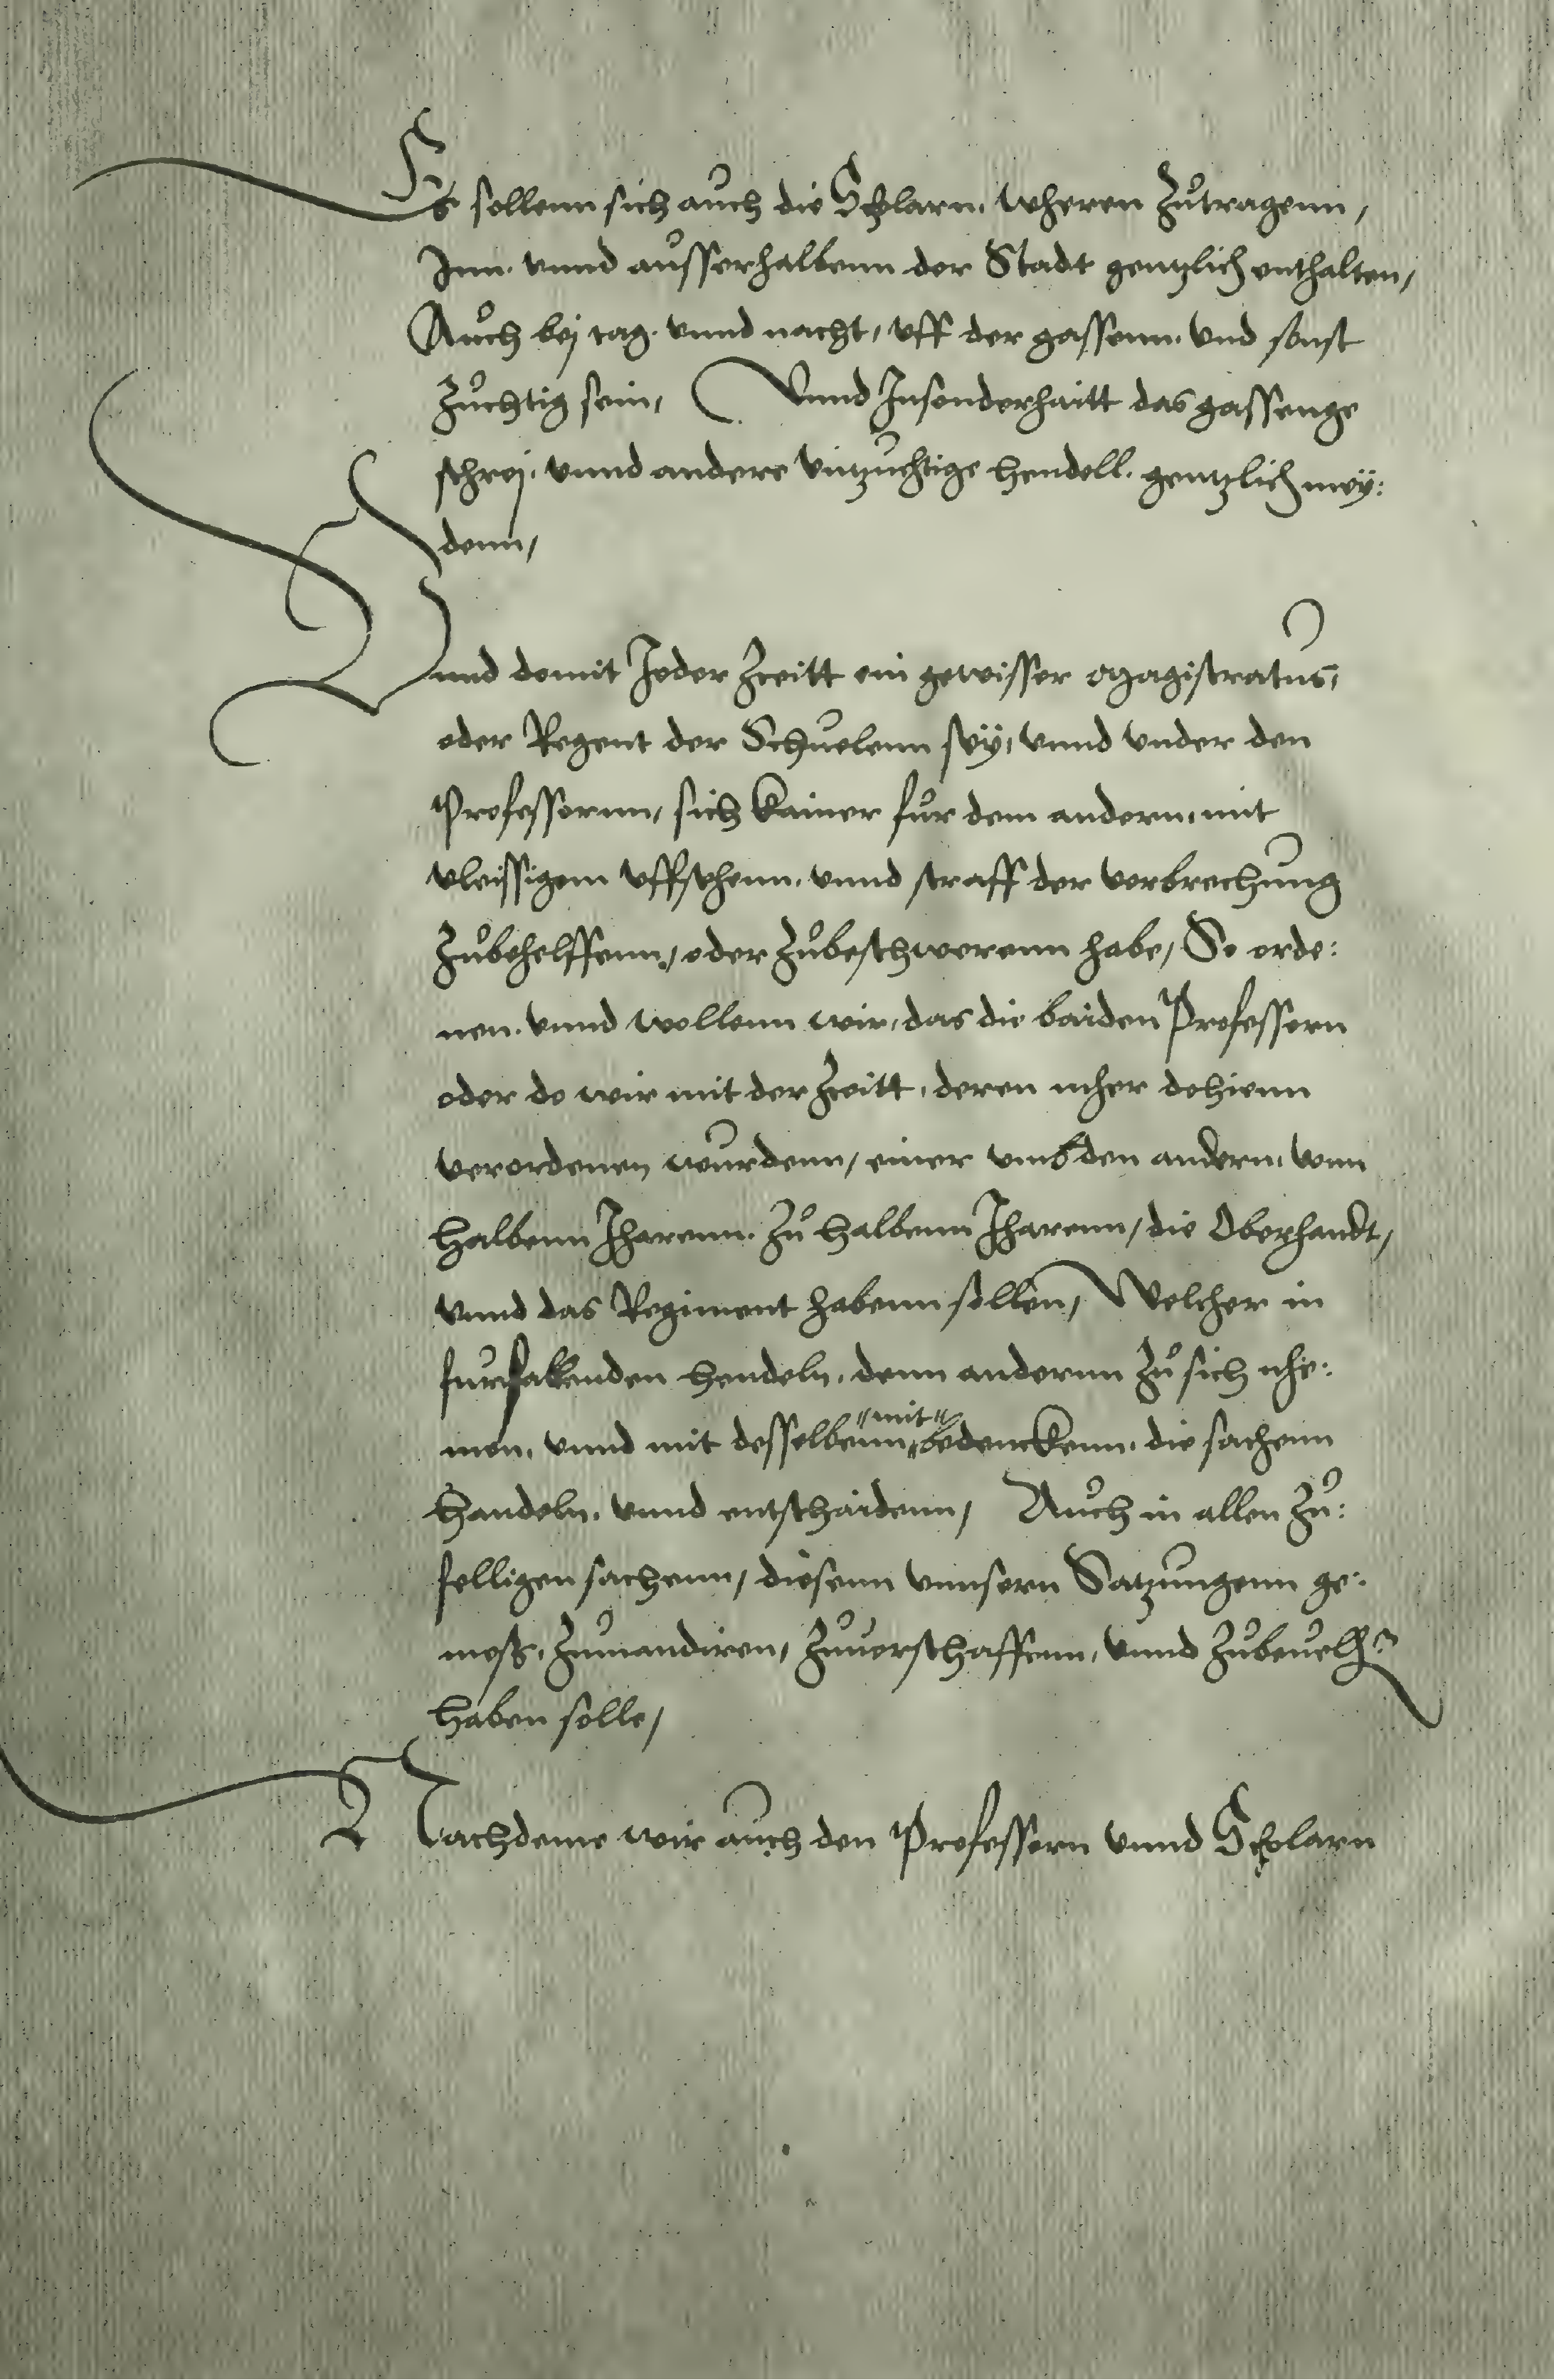 Es sollenn sich auch die Scholarn. wheren Zůtragenn,
Inn. vnnd aůsserhalbenn der Stadt gentzlich enthalten,
Aůch bej tag. vnnd nacht, vff der gassenn. vnd sonst
Zůchtig sein, Vnnd Insonderhaitt das gassenge
schrej. vnnd andere vntzuchtige hendell. gentzlich mey:
denn,
Vnnd domit Jeder Zceitt ein gewisser Magistratus,
oder Regent der Schuelenn seÿ, vnnd vnder den
Professornn, sich kainer fůr dem andern, mit
vleissigem vffsehenn. vnnd straff der verbrechung
Zůbehelffenn, oder Zůbeschwerenn habe, So orde:
nen. vnnd wollenn wir, das die baiden Professorn
oder do wir mit der Zceitt, deren meher dohienn
verordenen wurdenn, einer vmb den andern, vonn
halbenn Jharenn. Zů halbenn Jharenn, die Oberhandt,
vnnd das Regiment habenn sollen, Welcher in
furfallenden hendeln, denn andernn Zů sich nhe:
men, vnnd mit desselbenn "mit" bedenckenn, die sachenn
handeln. vnnd entschaidenn, Aůch in allen Zů:
felligen sachenn, diesenn vnnsern Satzungenn ge:
mess, Zůmandiren, Zůuerschaffenn, vnnd Zůbeuelh
haben solle,
Nachdeme wir auch den Professorn vnnd Scholarn